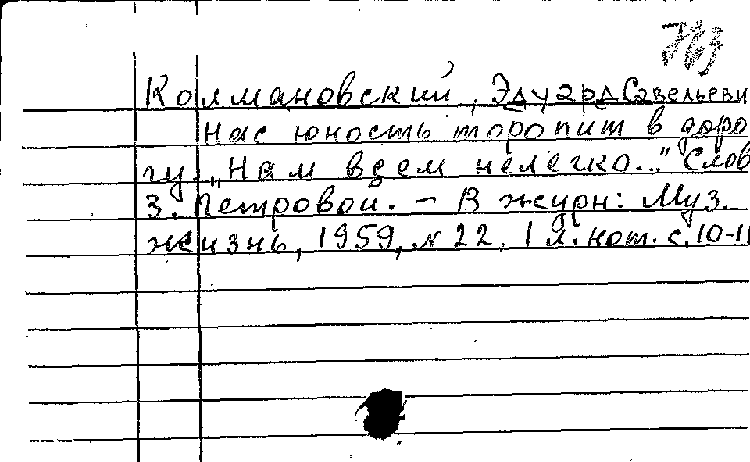 Колмановский, Эдуард Савельеви
Нас юность торопит в доро
гу. „Нам всем нелегко..." Слов
З. Петровой. – В журн: Муз.
жизнь, 1959, № 22, 1 л. нот. с. 10-11